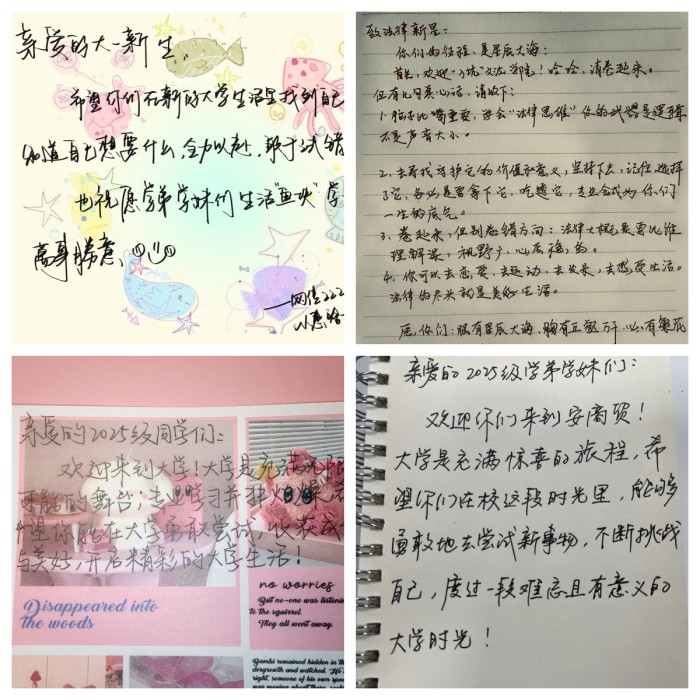 亲爱的大一新生、
希望你们在新的大学生活里找到自己
知道自己想要什么,全力以赴,敢于试错
也祝愿学弟学妹们生活"鱼"快 学
万事胜意、
——网信222
致法律新星:
你们的征程,是星辰大海:
首先,欢迎"入坑"文法学院!哈哈,请卷起来。
但有几句真心话,请收下:
1.脑子比嘴重要,学会"法律思维"你的武器是逻辑
不是声音大小。
2.去寻找守护它的价值和意义,坚持下去,记住,选择
了它,务必是要拿下它,吃透它,专业会成为你们
一生的底气。
3.卷起来,但别卷错方向:法律
理解深,视野广,心态稳,
4.你可以去恋爱,去运动,去发长,去热爱生活。
法律的尽头就是美好生活。
愿你们:眼有星辰大海,胸有丘壑万千,心有繁花
亲爱的2025级同学们:
欢迎来到大学!大学是充满无限
可能的舞台;专业学习并非火爆,
望你能在大学勇敢尝试,收获成
与美好,开启精彩的大学生活!
Disappeared into
the woods
no worries
But no-one was listening
to the squirrel.
They all went away.
Bambi remained hidden in th
dergrowth and watched.
right, someone of his own spec
was moving about there
亲爱的2025级学弟学妹们:
欢迎你们来到安商贸!
大学是充满惊喜的旅程,希
望你们在校这段时光里,能够
勇敢地去尝试新事物,不断挑战
自己,度过一段难忘且有意义的
大学时光!